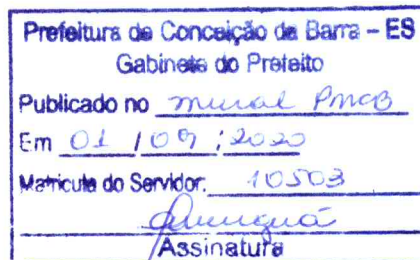 Prefeitura de Conceição da Barra – ES
Gabinete do Prefeito
Publicado no mural PMCB
Em 01 / 09 / 2020
Matricula do Servidor: 10503
Assinatura